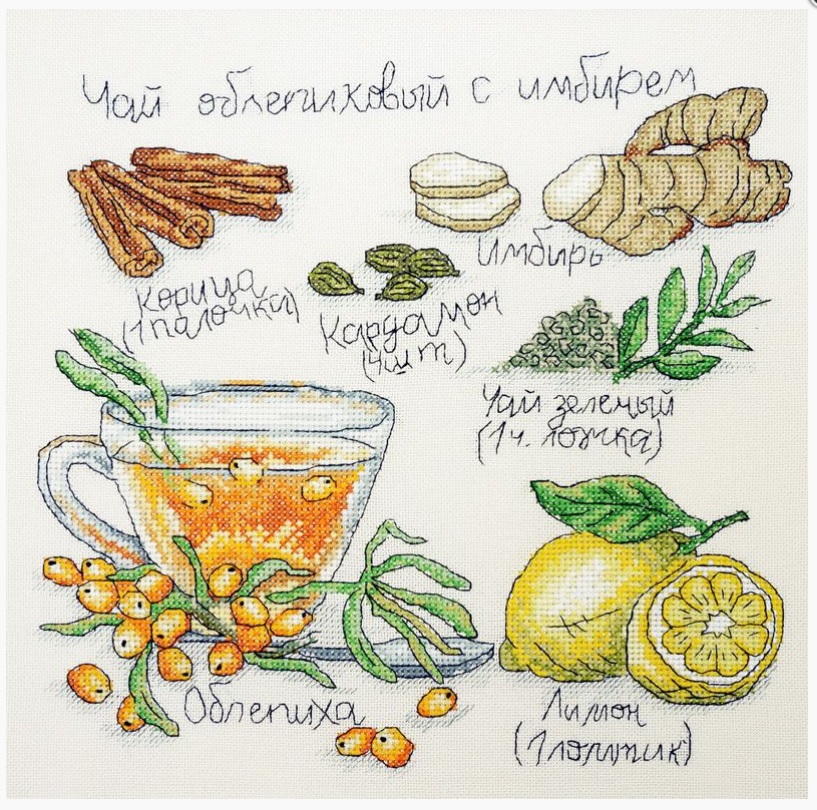 Чай облепиховый с имбирем
Имбирь
Корица
(1 палочка)
Кардамон
(4 шт)
Чай зеленый
(1 ч. ложка)
Облепиха
Лимон
(1 ломтик)